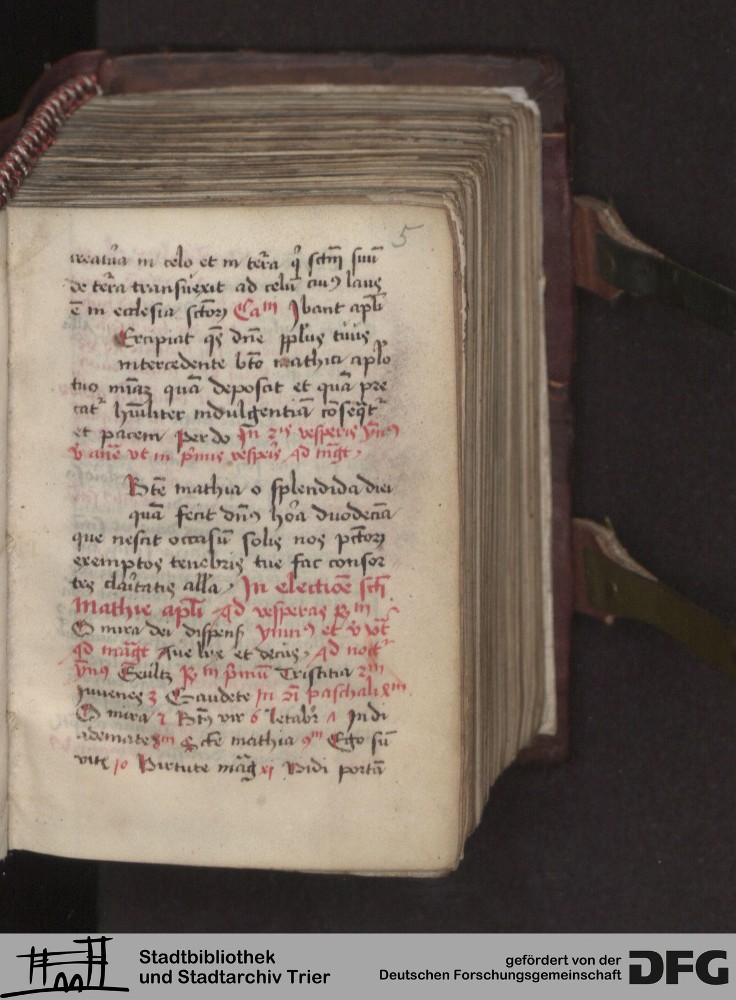 5
creatura in celo et in terra qi sctm suu
de tera transuexit ad celu cui9 laus
e in ecclesia sctorz Ca m Ibant apli
Excipiat qs dne pplus tuus
intercedente bto mathia aplo
tuo miaz qua deposcit et qua pre
catr huiliter indulgentia coseqtr
et pacem Per do In 2is vesperis ymn9
v ane vt in pmis vesperis Ad magt
Bte mathia o splendida diei
qua fecit dn9 hora duodecia
que nescit occasu solis nos pctorz
exemptos tenebris tue fac consor
tes claritatis alla In electioe sci
Mathie apli Ad vesperas R m
O mira dei dispens ymn9 et v vt
Ad magt Aue lux et decus Ad noct
ymn9 Exultz R m primu Tristitia 2m
Iuuenes 3 Gaudete In 2i paschali
O mira Bts vir 6 letabr Indi
ademate 8m Scte mathia 9m Ego su
vitis 10 Virtute mag xi Vidi porta
Stadtbibliothek
und Stadtarchiv Trier
gefördert von der
Deutschen Forschungsgemeinschaft
DFG